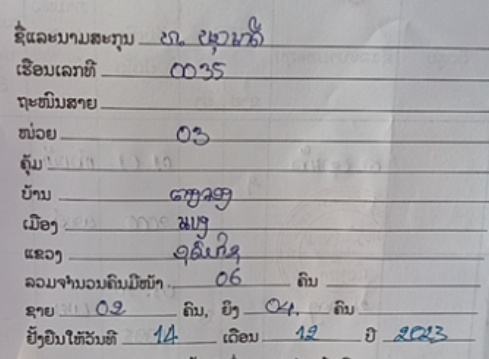 ຊື່ແລະນາມສະກຸນ ທ.
ເຮືອນເລກທີ 0035
ຖະໜົນສາຍ
ໜ່ວຍ 03
ຄຸ້ມ
ບ້ານ
ເມືອງ
ແຂວງ
ລວມຈຳນວນຄົນມີໜ້າ 06 ຄົນ
ຊາຍ 02 ຄົນ, ຍິງ 04. ຄົນ
ຢັ້ງຢືນໃຫ້ວັນທີ 14 ເດືອນ 12 ປີ 2023